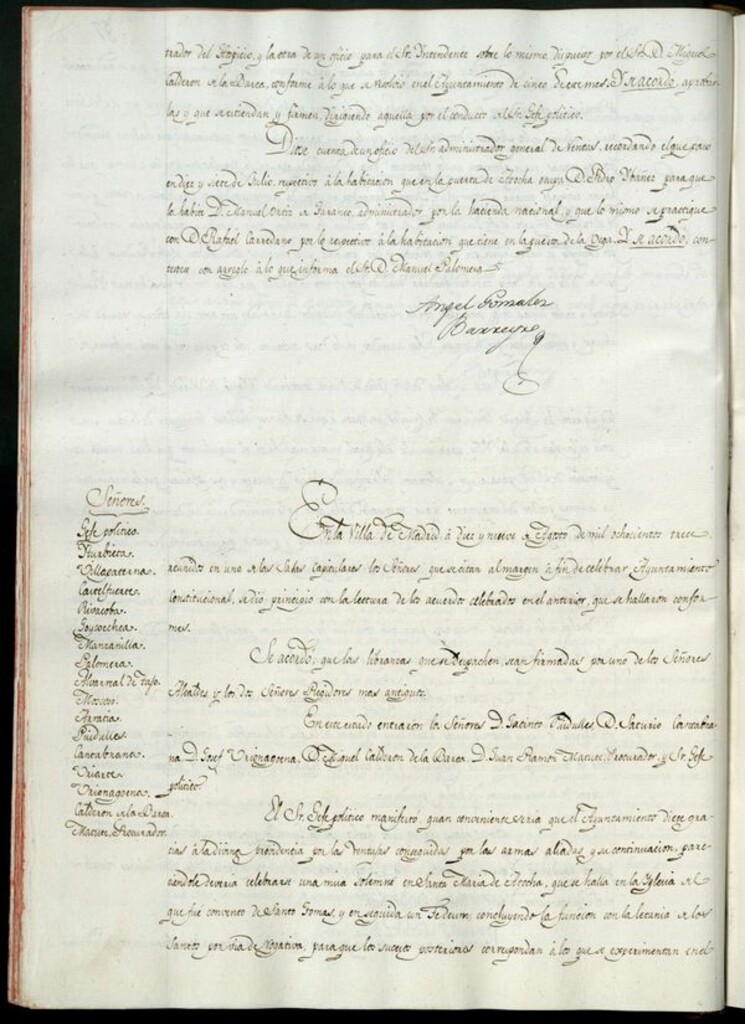 trador del Hospicio, y la otra de un oficio para el Sr. Yntendente sobre lo mismo, dispuesto por el Sr. D. Miguel
Calderon de la Barca, conforme á lo que se resolvió en el Ayuntamiento de cinco de este mes. Y se acordó, aprobar
las y que se estiendan y firmen, dirigiendo aquella por el conducto del Sr. Gefe politico.
Diose cuenta de un oficio del Sr. administrador general de Ventas, recordando el que paso
en diez y siete de Julio, respectivo á la habitacion que en la puerta de Atocha ocupa D. Pedro Ybañez para que
la habite D. Manuel Ortiz de Taranco, administrador por la hacienda nacional, y que lo mismo se practique
con D. Rafael Carredano por lo respectivo á la habitacion que tiene en la puerta de la Vega. Y se acordó, con
testar con arreglo á lo que informa el Sr. D. Manuel Palomera.
Angel Gonzalez
Barreyro
Señores.
Gefe politico.
Yturbieta.
Villapaterna.
Castelfuerte.
Rivacoba.
Goycoechea.
Manzanilla.
Palomera.
Alvarral de Tajo.
Arratia.
Puidulles.
Cantabrana.
Uriarte.
Urionagoena.
Calderon de la Barca.
Matute, Procurador.
En la Villa de Madrid á diez y nueve de Agosto de mil ochocientos trece,
reunidos en una de las Salas Capitulares los Señores que se citan al margen á fin de celebrar Ayuntamiento
Constitucional, se dio principio con la lectura de los acuerdos celebrados en el anterior, que se hallaron confor-
mes.
Se acordó, que las libranzas que se despachen, sean firmadas por uno de los Señores
Alcaldes y los dos Señores Regidores mas antiguos.
En este estado entraron los Señores D. Jacinto Puidulles, D. Saturio Cantabra
na D. Josef Urionagoena, D. Miguel Calderon de la Barca, D. Juan Ramon Matute, Procurador y Sr. Gefe
politico.
El Sr. Gefe politico manifestó, quan conveniente seria que el Ayuntamiento diese gra
cias á la divina providencia por las ventajas conseguidas por las armas aliadas, y su continuacion, pare-
ciendole deveria celebrarse una misa solemne en Santa Maria de Atocha, que se halla en la Yglesia del
que fué convento de Santo Tomas, y en seguida un Tedeum, concluyendo la funcion con la letania de los
Santos por via de Rogativa, para que los sucesos posteriores correspondan á los que se experimentan en el